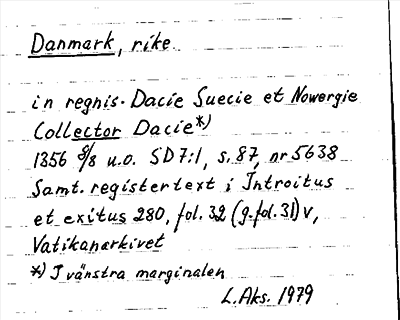 Danmark, rike
in regnis. Dacie Suecie et Nowergie
Collector Dacie*)
1356 8/8 u.o. SD7:1, s. 87, nr 5638
Samt. registertext i Introitus
et exitus 280, fol. 32 (g.fol. 31) v,
Vatikanarkivet
*) I vänstra marginalen
L. Aks. 1979